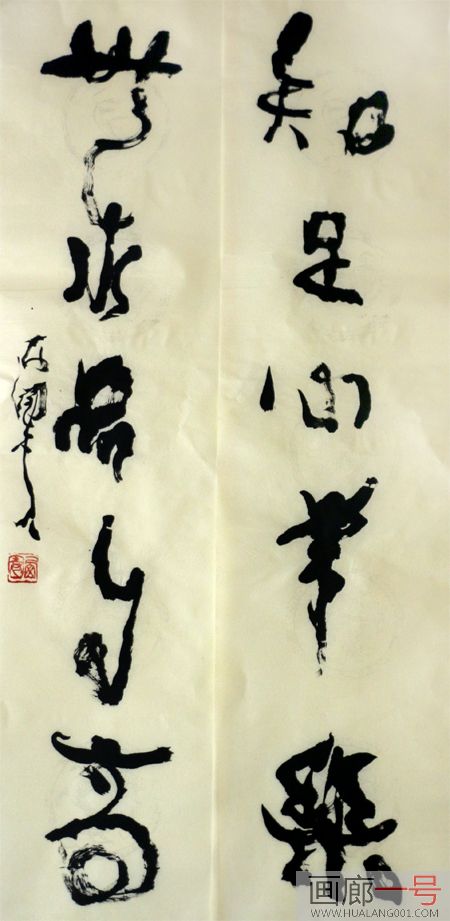 知足心常樂
無求品自高
画廊一号
WWW.HUALANG001.COM